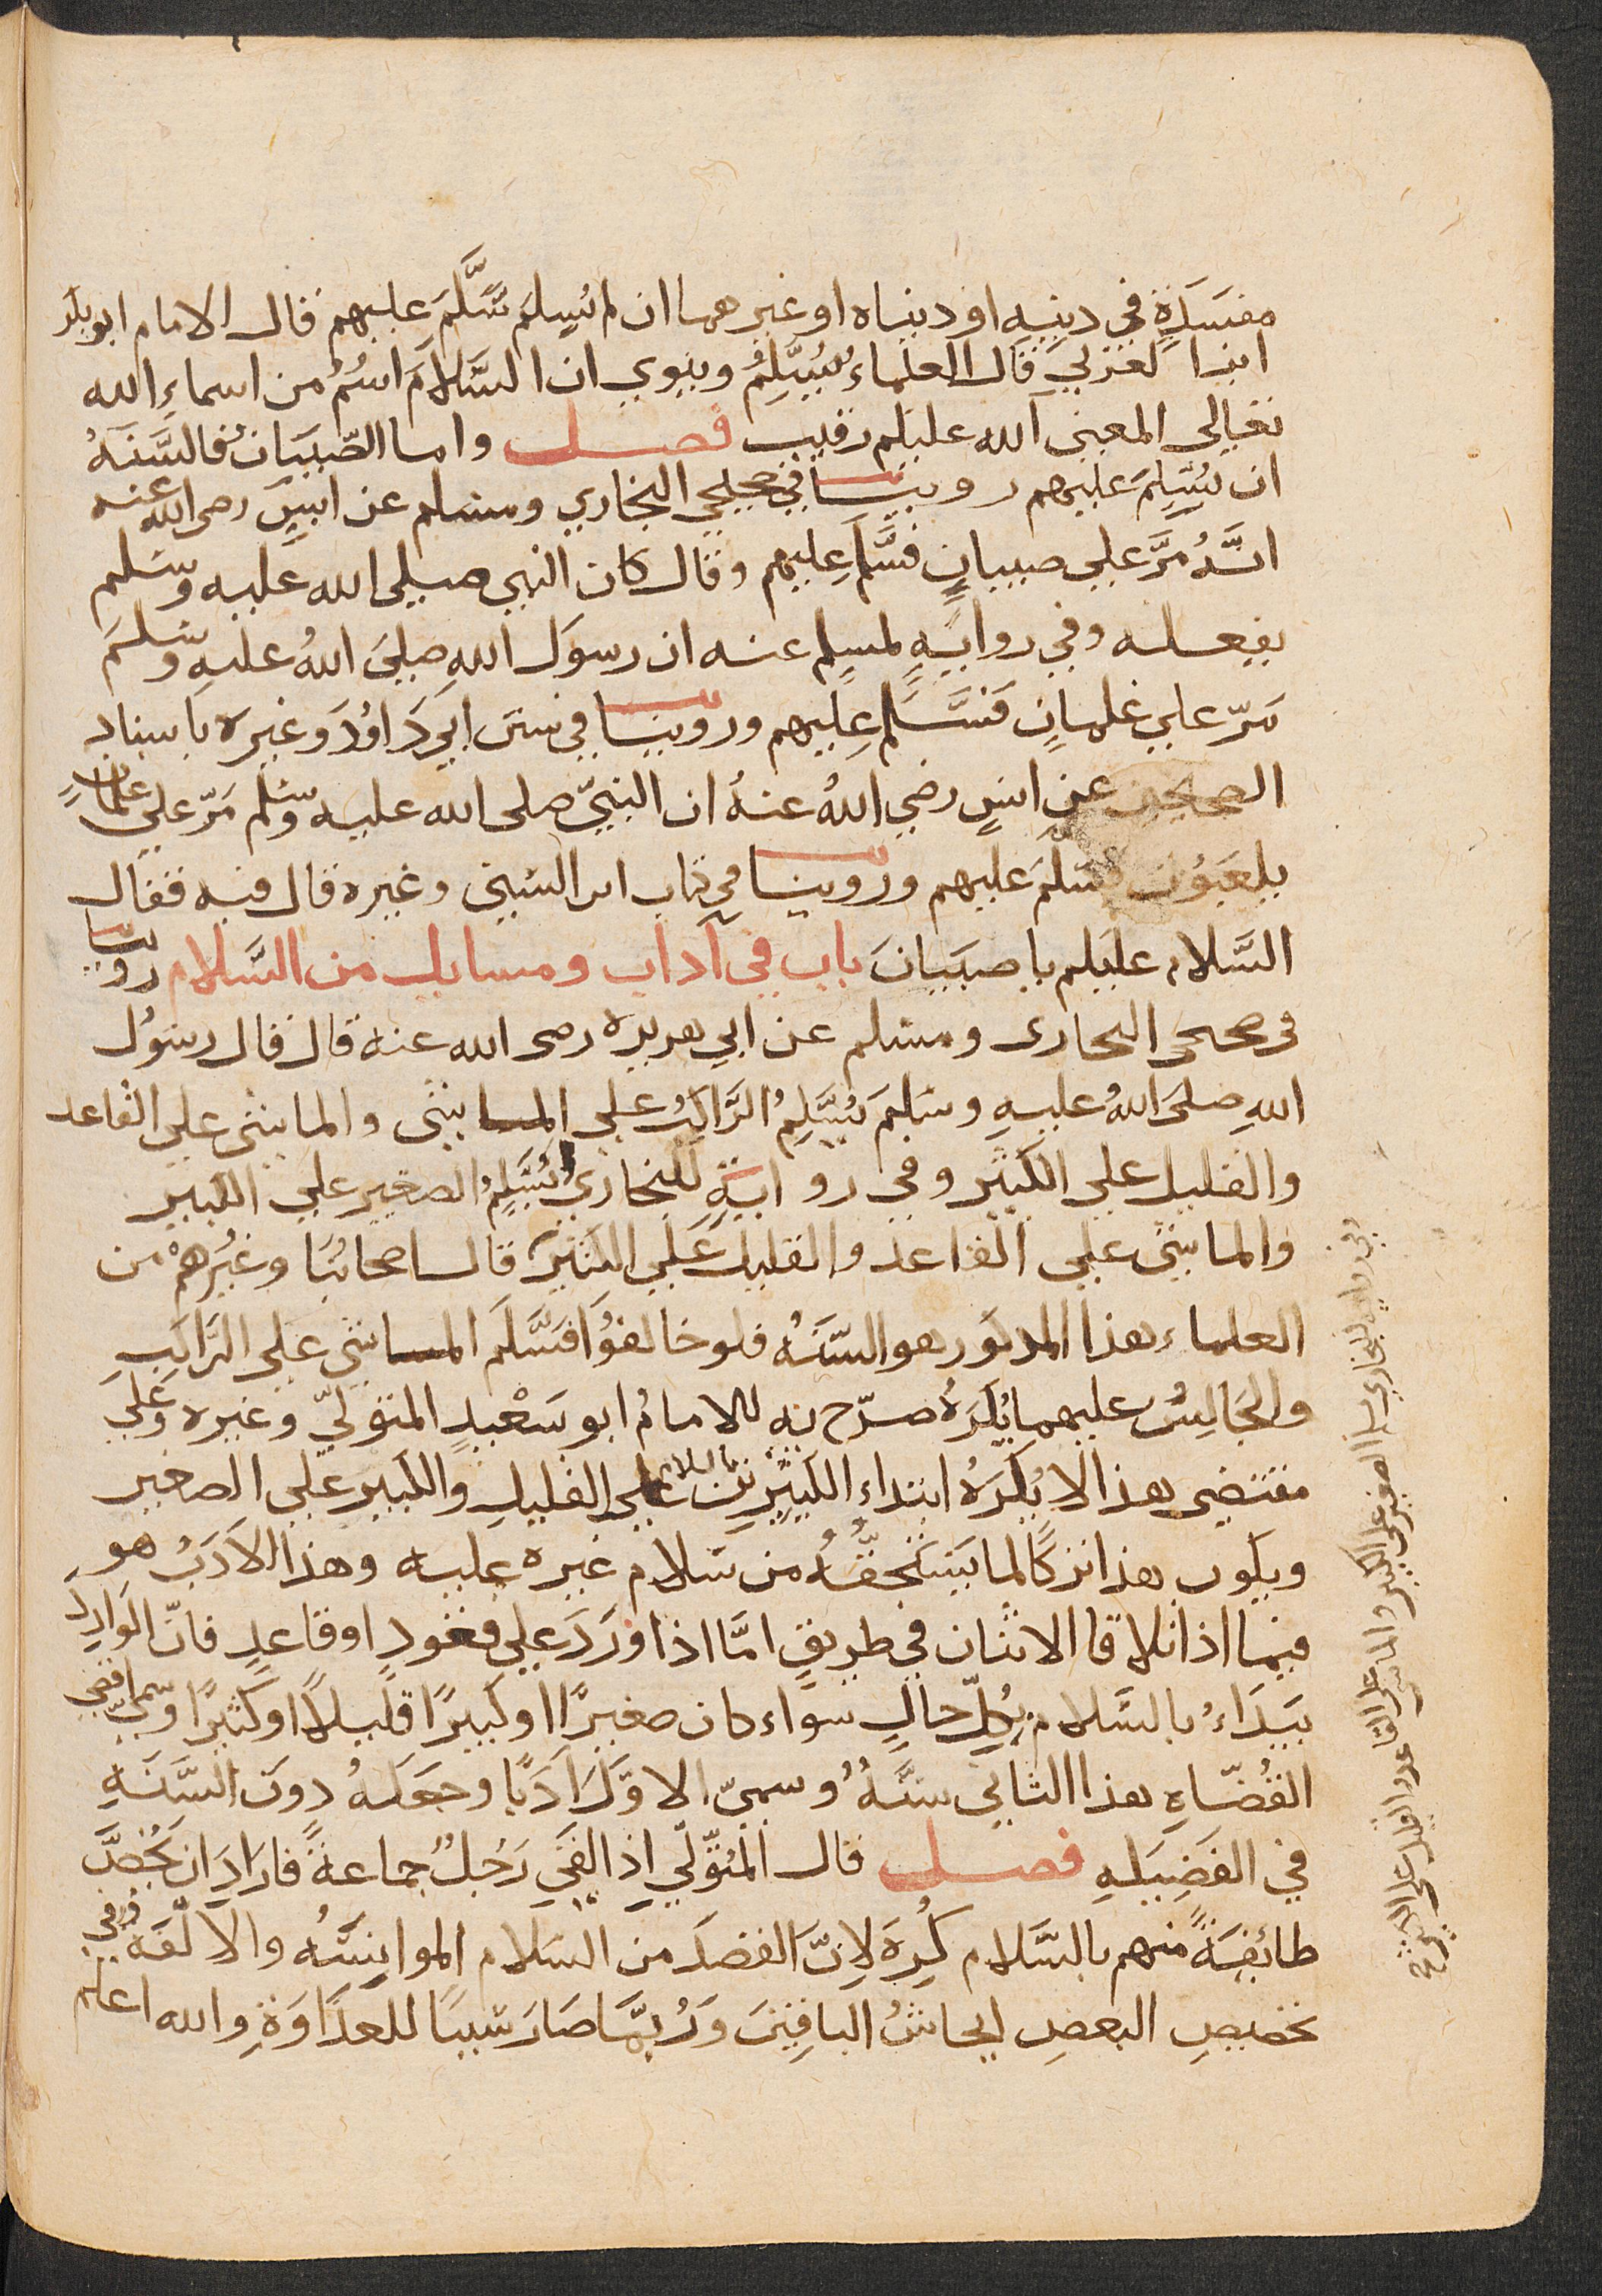 مفسَدَةٍ في دينِهِ او دنياه او غيرهما ان لم يُسلِم سَلَّمَ عليهم قال الامام ابو بكر
ابنا لعزلي قال العلماء يُسَلِّمُ وينوي ان السَّلامَ اسْمٌ من اسماءِ الله
تعالى المعنى الله عليكم رقيب فصل واما الصّبيَان فالسَّنَّهُ
ان يُسَلِّمَ عليهم روينا في صحيحي البخاري ومسلم عن انسٍ رضى الله عنه
انَّهُ مَرَّ علي صبيانٍ فسَّلم عليهم وقال كان النبي صلى الله عليه وسَلم
يفعله وفي روايَةٍ لمسلم عنه ان رسوَل اللهِ صلىَ اللهُ عليهِ وسَلمَ
مَرّ علي غلمانٍ فسَّلَم عليهم وروينا في سنن ابي دَاوُدَ وغيره باسناد
الصحيحين عن انسٍ رضي اللهُ عنهُ ان النبيّ صلى الله عليه وسلم مَرّ علي غلمانٍ
يلعَبُون فسَلَّمَ عليهم وروينا في كتاب ابن السّني وغيره قال فيه فقال
السَّلام عليكم يا صبيَانَ باب في آداب ومسايل من السَّلام روينا
في صحيحي البخارى ومسلم عن ابي هريره رضى الله عنه قال قال رسُول
اللهِ صلىَ اللهُ عليهِ وسَلمَ يُسَلِّمُ الرَّاكِبُ علي الماشي والماشي علي القاعد
والقليل علي الكثير وفي روايةٍ للبخاري يُسَلِّمُ الصغير علي الكبير
والماشي علي القاعد والقليل عَلي الكثير قال اصحابُنا وغيُرهمْ من
العلماء هذا المذكور هو السّنَهُ فلو خالفوُا فسَّلَمَ الماشي علي الرَّاكبِ
والجَالِسُ عليهما يُكرَهُ صرّح به الامامُ ابو سَعْيدٍ المتوليّ وغيره وعَلى
مقتضى هذا لا يُكرَهُ ابتداء الكثيرين بالسلام علي القليل والكبير علي الصغير
ويكون هذا تركًا لما يَستَحِقُّهُ من سَلام غيره عليه وهذا الاَدَبُ هو
فيما اذا تلاقا الاثنان في طريقٍ امَّا اذا ورَدَ علي قعودٍ او قاعدٍ فانّ الوَارِدَ
يبَدَاءُ بالسَّلام بكلّ حالٍ سواء كان صغيرًا او كبيرًا قليلاً او كثيرًا وسمّى اقضى
القُضَاةِ هذا الثاني سنّةً وسميّ الاوّلَ ادَبًا وجعَلَهُ دونَ السَّنَّهِ
في الفَضِيَلهِ فصل قال المتوّلي اِذا لقى رَجُلٌ جماعةً فارَادَ ان يخُصَّ
طائفَةً منهم بالسَّلام كُرِهَ لاِنّ القصدَ من السَلام الموانسَهُ والاُلفَه وفي
تخصيصِ البعضِ ايحاشُ الباقِينَ وَرُبمّا صَارَ سَببًا للعدَاوَةِ والله اعلم
وفي روايه للبخاري يسلم الصغير على الكبير والماشي على القاعد والقليل على الكثير صح